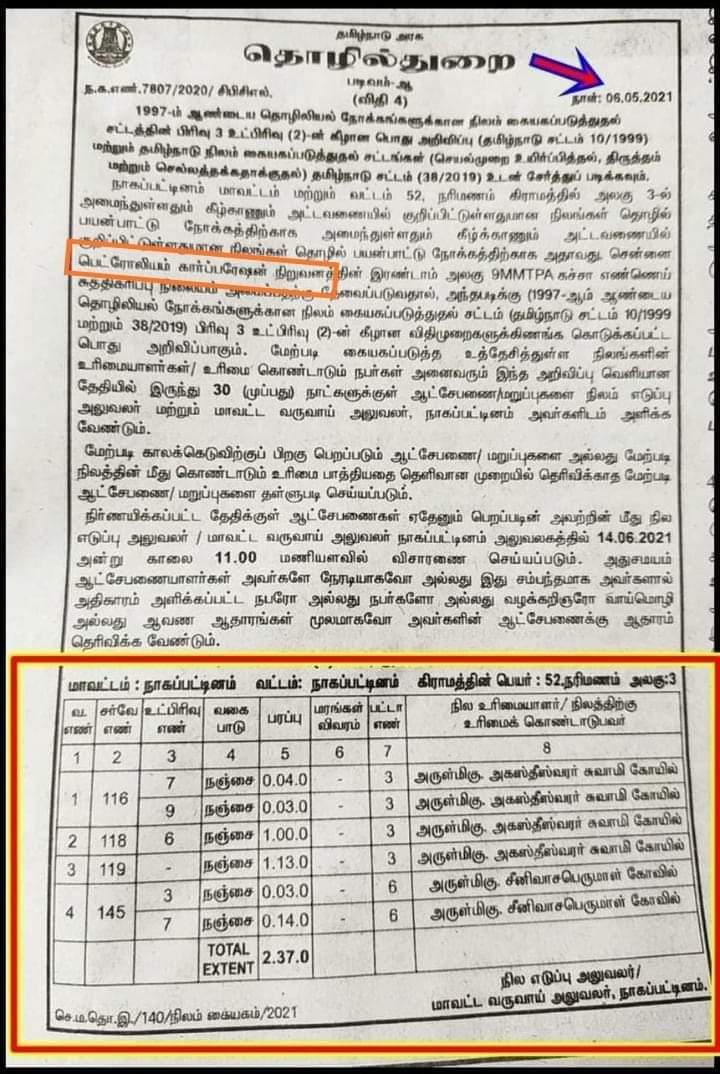 தமிழ்நாடு அரசு
தொழில்துறை
ந.க.எண்.7807/2020/ சிபிசிஎல்.
படிவம்-ஆ
(விதி 4)
நாள்: 06.05.2021
1997-ம் ஆண்டைய தொழிலியல் நோக்கங்களுக்கான நிலம் கையகப்படுத்துதல்
சட்டத்தின் பிரிவு 3 உட்பிரிவு (2)-ன் கீழான பொது அறிவிப்பு (தமிழ்நாடு சட்டம் 10/1999)
மற்றும் தமிழ்நாடு நிலம் கையகப்படுத்துதல் சட்டங்கள் (செயல்முறை உயிர்ப்பித்தல், திருத்தம்
மற்றும் செல்லத்தக்கதாக்குதல்) தமிழ்நாடு சட்டம் (38/2019) உடன் சேர்த்துப் படிக்கவும்.
நாகப்பட்டினம் மாவட்டம் மற்றும் வட்டம் 52, நரிமணம் கிராமத்தில் அலகு 3-ல்
அமைந்துள்ளதும் கீழ்காணும் அட்டவணையில் குறிப்பிட்டுள்ளதுமான நிலங்கள் தொழில்
பயன்பாட்டு நோக்கத்திற்காக அமைந்துள்ளதும் கீழ்க்காணும் அட்டவணையில்
குறிப்பிட்டுள்ளதுமான நிலங்கள் தொழில் பயன்பாட்டு நோக்கத்திற்காக அதாவது சென்னை
பெட்ரோலியம் கார்ப்பரேஷன் நிறுவனத்தின் இரண்டாம் அலகு 9MMTPA கச்சா எண்ணெய்
சுத்திகரிப்பு நிலையம் அமைப்பதற்கு தேவைப்படுவதால், அந்தபடிக்கு (1997-ஆம் ஆண்டைய
தொழிலியல் நோக்கங்களுக்கான நிலம் கையகப்படுத்துதல் சட்டம் (தமிழ்நாடு சட்டம் 10/1999
மற்றும் 38/2019) பிரிவு 3 உட்பிரிவு (2)-ன் கீழான விதிமுறைகளுக்கிணங்க கொடுக்கப்பட்ட
பொது அறிவிப்பாகும். மேற்படி கையகப்படுத்த உத்தேசித்துள்ள நிலங்களின்
உரிமையாளர்கள்/ உரிமை கொண்டாடும் நபர்கள் அனைவரும் இந்த அறிவிப்பு வெளியான
தேதியில் இருந்து 30 (முப்பது) நாட்களுக்குள் ஆட்சேபணை/மறுப்புகளை நிலம் எடுப்பு
அலுவலர் மற்றும் மாவட்ட வருவாய் அலுவலர், நாகப்பட்டினம் அவர்களிடம் அளிக்க
வேண்டும்.
மேற்படி காலக்கெடுவிற்குப் பிறகு பெறப்படும் ஆட்சேபணை/ மறுப்புகளை அல்லது மேற்படி
நிலத்தின் மீது கொண்டாடும் உரிமை பாத்தியதை தெளிவான முறையில் தெரிவிக்காத மேற்படி
ஆட்சேபணை/ மறுப்புகளை தள்ளுபடி செய்யப்படும்.
நிர்ணயிக்கப்பட்ட தேதிக்குள் ஆட்சேபணைகள் ஏதேனும் பெறப்படின் அவற்றின் மீது நில
எடுப்பு அலுவலர் / மாவட்ட வருவாய் அலுவலர் நாகப்பட்டினம் அலுவலகத்தில் 14.06.2021
அன்று காலை 11.00 மணியளவில் விசாரணை செய்யப்படும். அதுசமயம்
ஆட்சேபணையாளர்கள் அவர்களே நேரடியாகவோ அல்லது இது சம்பந்தமாக அவர்களால்
அதிகாரம் அளிக்கப்பட்ட நபரோ அல்லது நபர்களோ அல்லது வழக்கறிஞரோ வாய்மொழி
அல்லது ஆவண ஆதாரங்கள் மூலமாகவோ அவர்களின் ஆட்சேபணைக்கு ஆதாரம்
தெரிவிக்க வேண்டும்.
மாவட்டம் : நாகப்பட்டினம் வட்டம்: நாகப்பட்டினம் கிராமத்தின் பெயர் : 52.நரிமணம் அலகு:3
வ. எண் சர்வே எண் உட்பிரிவு எண் வகை பாடு பரப்பு மரங்கள் விவரம் பட்டா எண் நில உரிமையாளர்/ நிலத்திற்கு உரிமைக் கொண்டாடுபவர்
1 2 3 4 5 6 7 8
1 116 7 நஞ்சை 0.04.0 - 3 அருள்மிகு. அகஸ்தீஸ்வரர் சுவாமி கோயில்
9 நஞ்சை 0.03.0 - 3 அருள்மிகு. அகஸ்தீஸ்வரர் சுவாமி கோயில்
2 118 6 நஞ்சை 1.00.0 - 3 அருள்மிகு. அகஸ்தீஸ்வரர் சுவாமி கோயில்
3 119 - நஞ்சை 1.13.0 - 3 அருள்மிகு. அகஸ்தீஸ்வரர் சுவாமி கோயில்
4 145 3 நஞ்சை 0.03.0 - 6 அருள்மிகு. சீனிவாசபெருமாள் கோவில்
7 நஞ்சை 0.14.0 - 6 அருள்மிகு. சீனிவாசபெருமாள் கோவில்
TOTAL EXTENT 2.37.0
நில எடுப்பு அலுவலர்/
மாவட்ட வருவாய் அலுவலர், நாகப்பட்டினம்.
செ.ம.தொ.இ./140/நிலம் கையகம்/2021